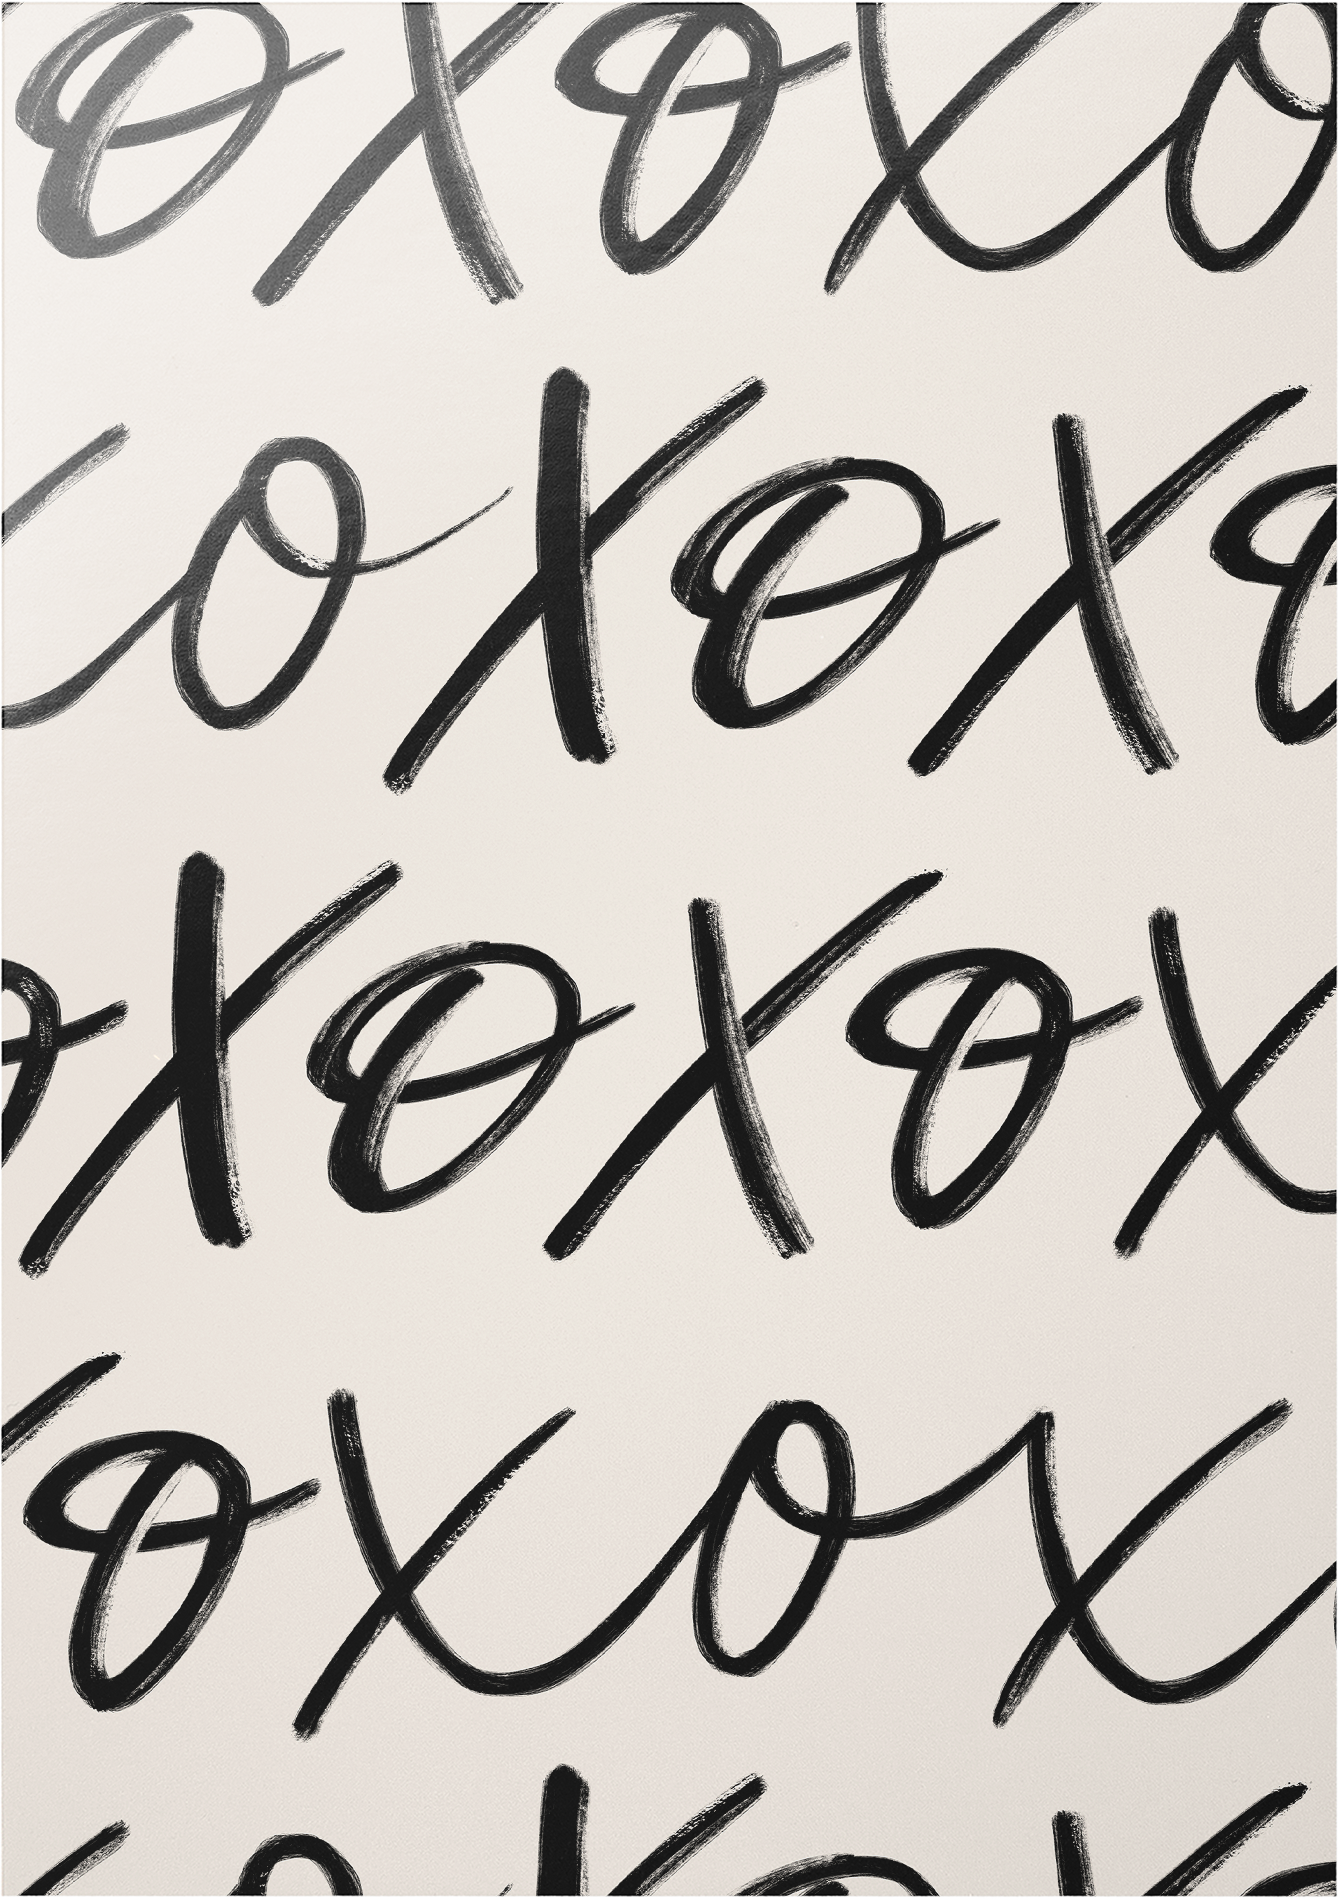 oxoxo
xoxoxo
oxoxox
xoxox
xoxoxo